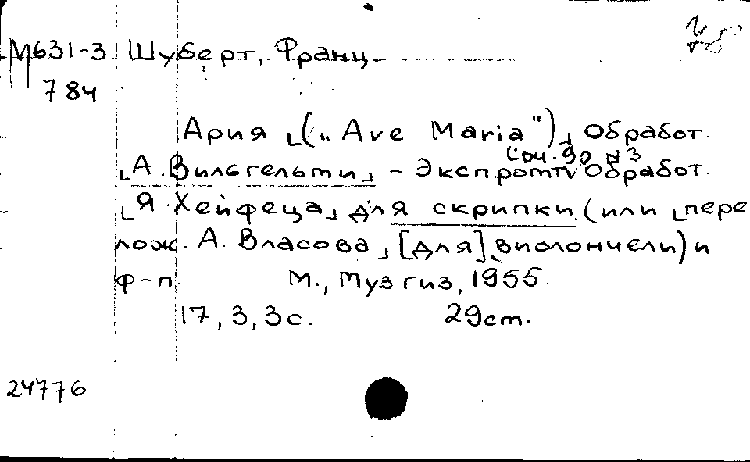 М631-3 Шуберт, Франц.
784
Ария ⌊("Ave Maria")⌋ Обработ.
⌊А. Вильгельми⌋ - Экспромт Соч. 90 №3 Обработ.
⌊Я. Хейфеца⌋ для скрипки (или ⌊пере
лож. А. Власова⌋ [для] виолончели) и
ф-п. М., Музгиз, 1955.
17, 3, 3 с. 29 cm.
24776